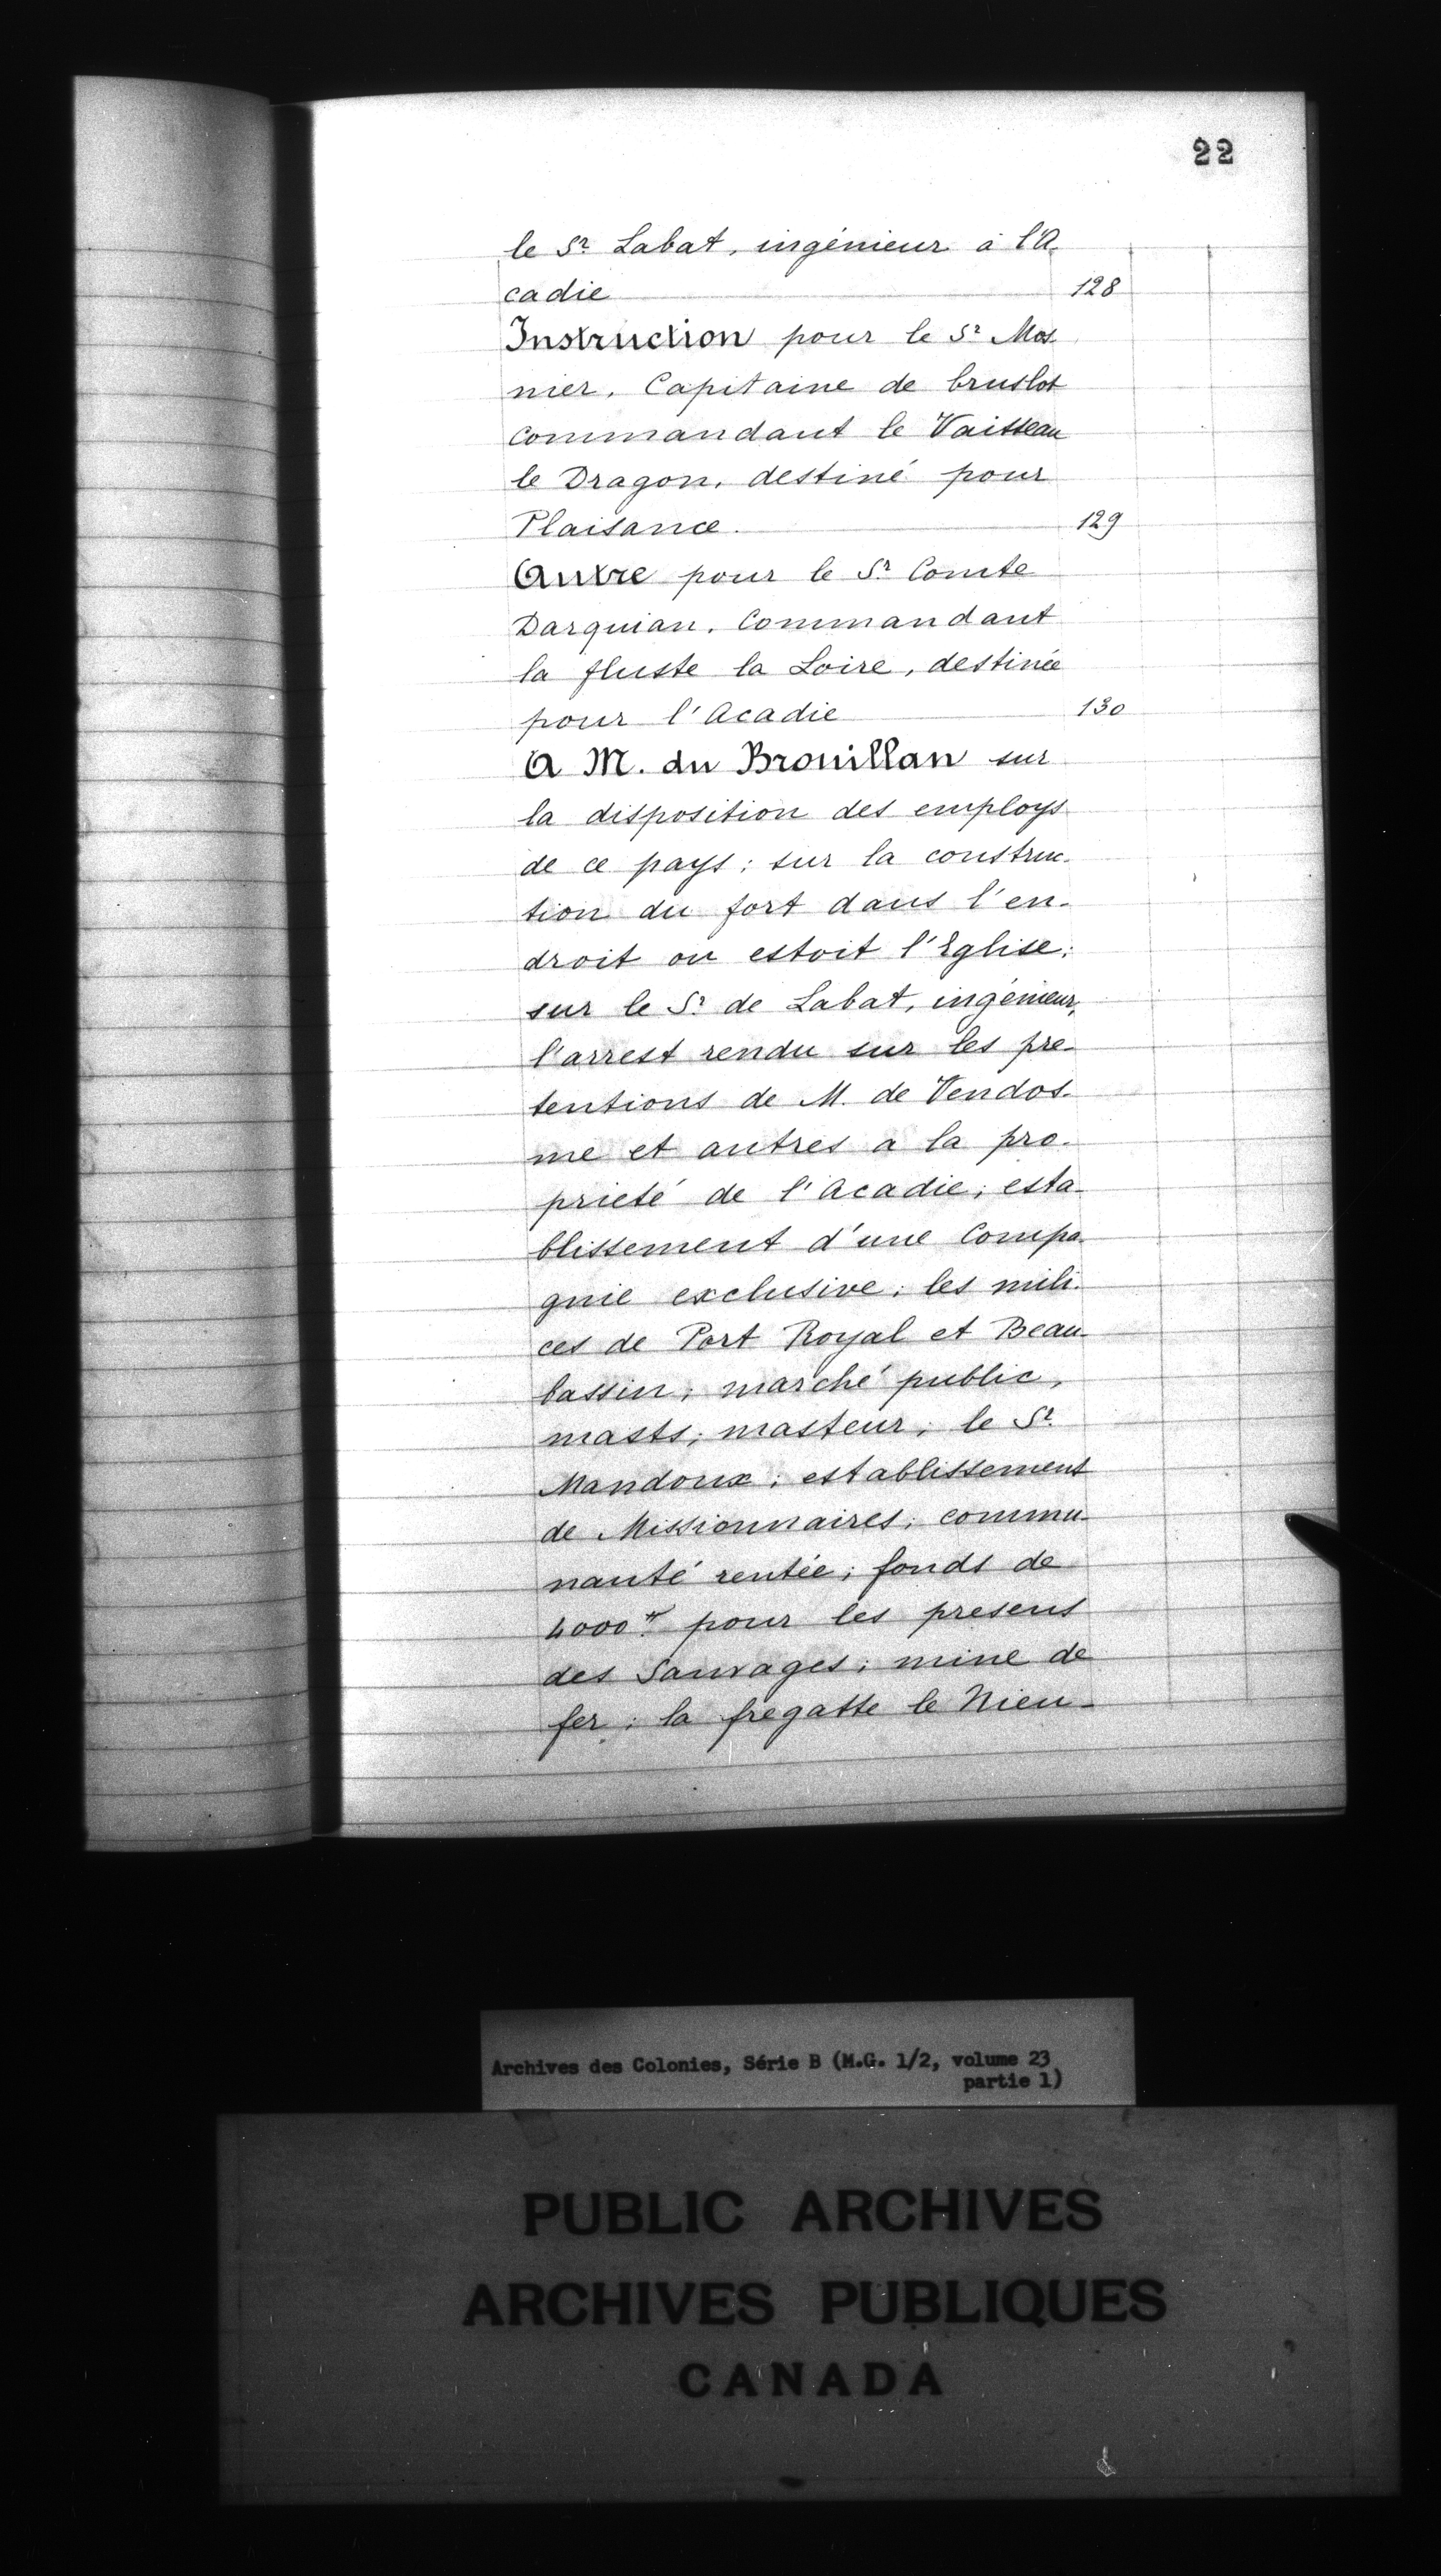 22
le Sr Labat, ingénieur à l'A-
cadie 128
Instruction pour le Sr Mos-
nier, Capitaine de bruslot
commandant le Vaisseau
le Dragon, destiné pour
Plaisance. 129
Autre pour le Sr Comte
Darquian, Commandant
la fluste la Loire, destinée
pour l'Acadie 130
A M. du Brouillan sur
la disposition des employs
de ce pays; sur la construc-
tion du fort dans l'en-
droit ou estoit l'Eglise;
sur le Sr de Labat, ingénieur,
l'arrest rendu sur les pre-
tentions de M. de Vendos-
me et autres a la pro-
prieté de l'Acadie; esta-
blissement d'une Compa-
gnie exclusive; les mili-
ces de Port Royal et Beau-
bassin; marché public,
masts; masteur; le Sr
Mandoux; establissement
de Missionnaires; commu-
nauté rentée; fonds de
4000tt pour les presens
des Sauvages; mine de
fer; la fregatte le Nieu-
Archives des Colonies, Série B (M.G. 1/2, volume 23
partie 1)
PUBLIC ARCHIVES
ARCHIVES PUBLIQUES
CANADA